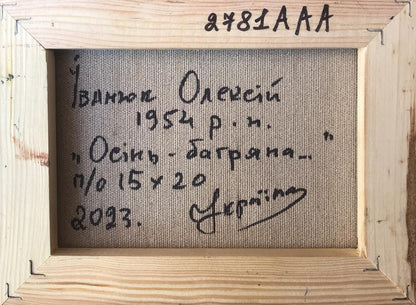 2781AAA
Іванюк Олексій
1954 р.н.
„Осінь-багряна..."
п/о 15х20
2023. Україна